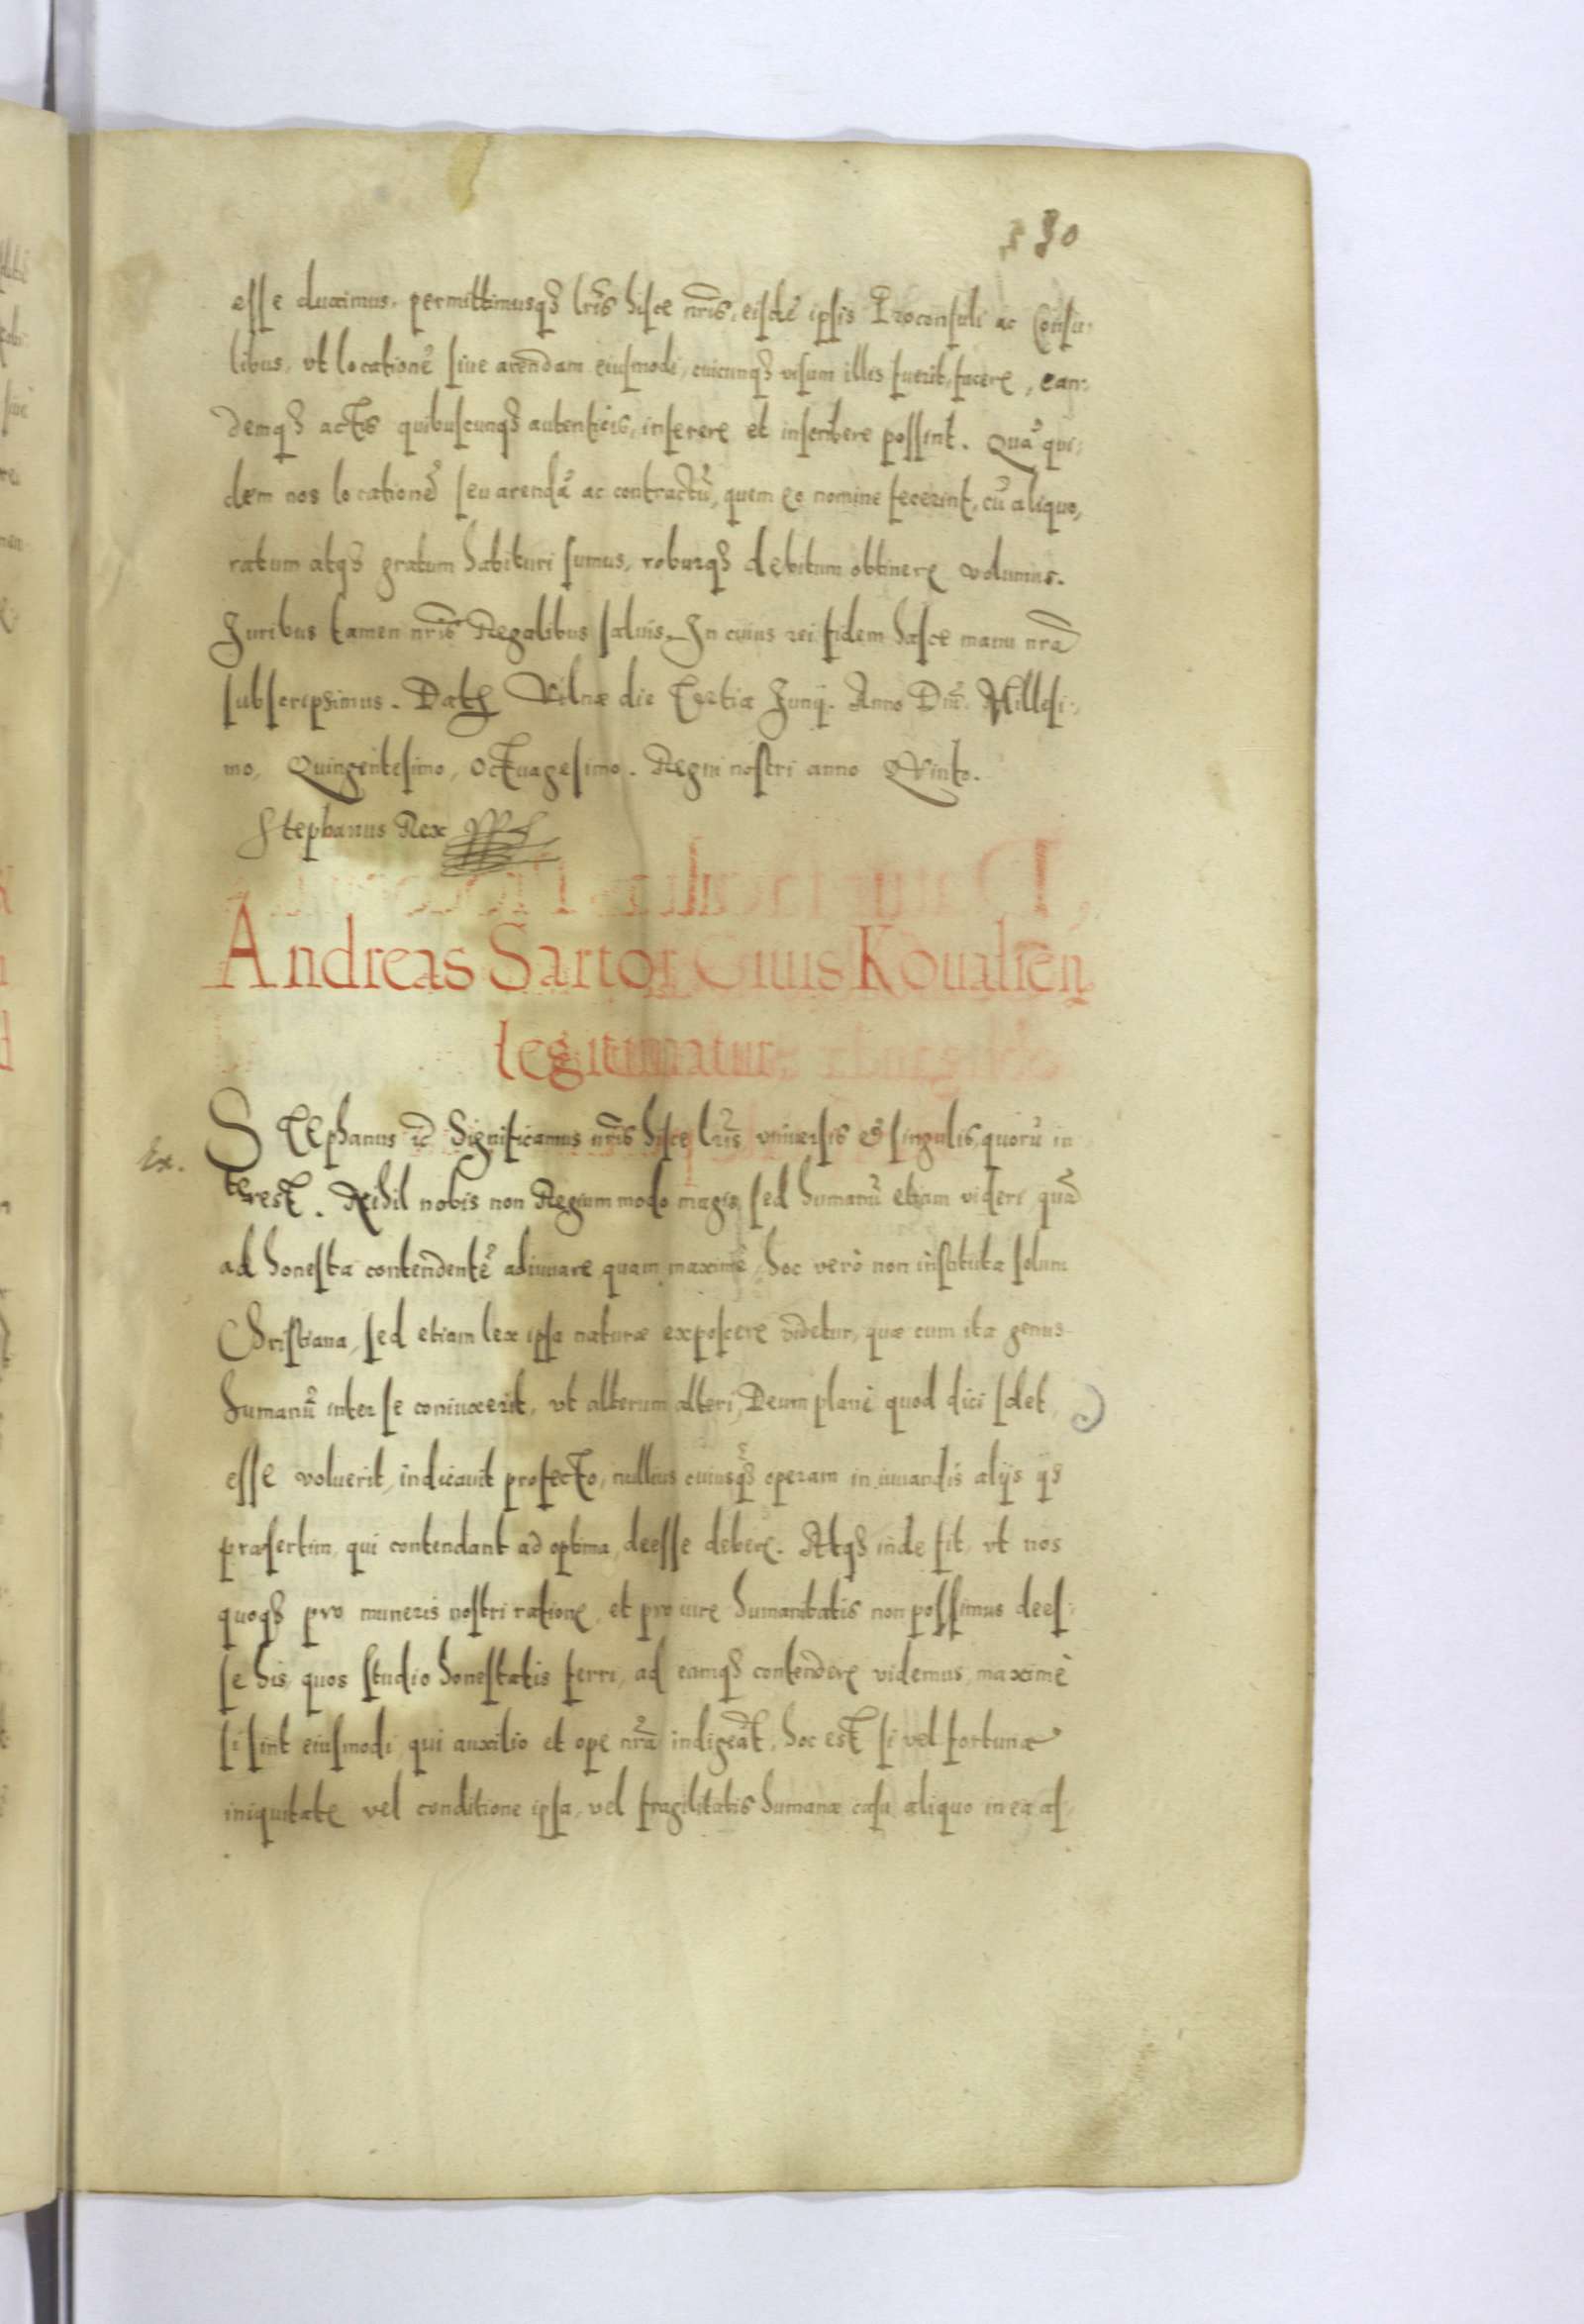 330
esse duximus. permittimusqȝ lr̃is hisce nr̃is, eisdẽ ipsis Proconsuli ac Consu:
libus, vt locationẽ siue arendam eiusmodi, cuicunqȝ visum illis fuerit, facere, ean:
demqȝ actis quibuscunqȝ autenticis, inserere et inscribere possint. Quã qui:
dem nos locationẽ seu arendã ac contractũ, quem eo nomine fecerint, cũ aliquo,
ratum atqȝ gratum habituri sumus, roburqȝ debitum obtinere volumus.
Juribus tamen nr̃is Regalibus saluis. In cuius rei fidem hasce manu nr̃a
subscripsimus. Datȩ Vilnæ die Tertia Junij. Anno Dnĩ. Millesi:
mo, Quingentesimo, Octuagesimo. Regni nostri anno Quinto.
Stephanus Rex
Andreas Sartor Ciuis Koualieñ
legitimatur.
STEphanus ꝛc̃ Significamus nr̃is hisce lr̃is vniuersis & singulis, quorũ in
Ex.
terest. Nihil nobis non Regium modo magis, sed humanũ etiam videri quã
ad honesta contendentẽ adiuuare quam maximè, hoc verò non instituta solum
Christiana, sed etiam lex ipsa naturæ exposcere videtur, quæ cum ita genus
humanũ inter se coniuxerit, vt alterum alteri, Deum planè quod dici solet,
esse voluerit, indicauit profecto, nullius cuiusqȝ operam in iuuandis alijs ijs
præsertim, qui contendant ad optima, deesse debere. Atqȝ inde fit, vt nos
quoqȝ pro muneris nostri ratione, et pro iure humanitatis non possimus dees:
se his, quos studio honestatis ferri, ad eamqȝ contendere videmus, maximè
si sint eiusmodi, qui auxilio et ope nr̃a indigeãt, hoc est si vel fortunæ
iniquitate vel conditione ipsa, vel fragilitatis humanæ casu aliquo in ea as: